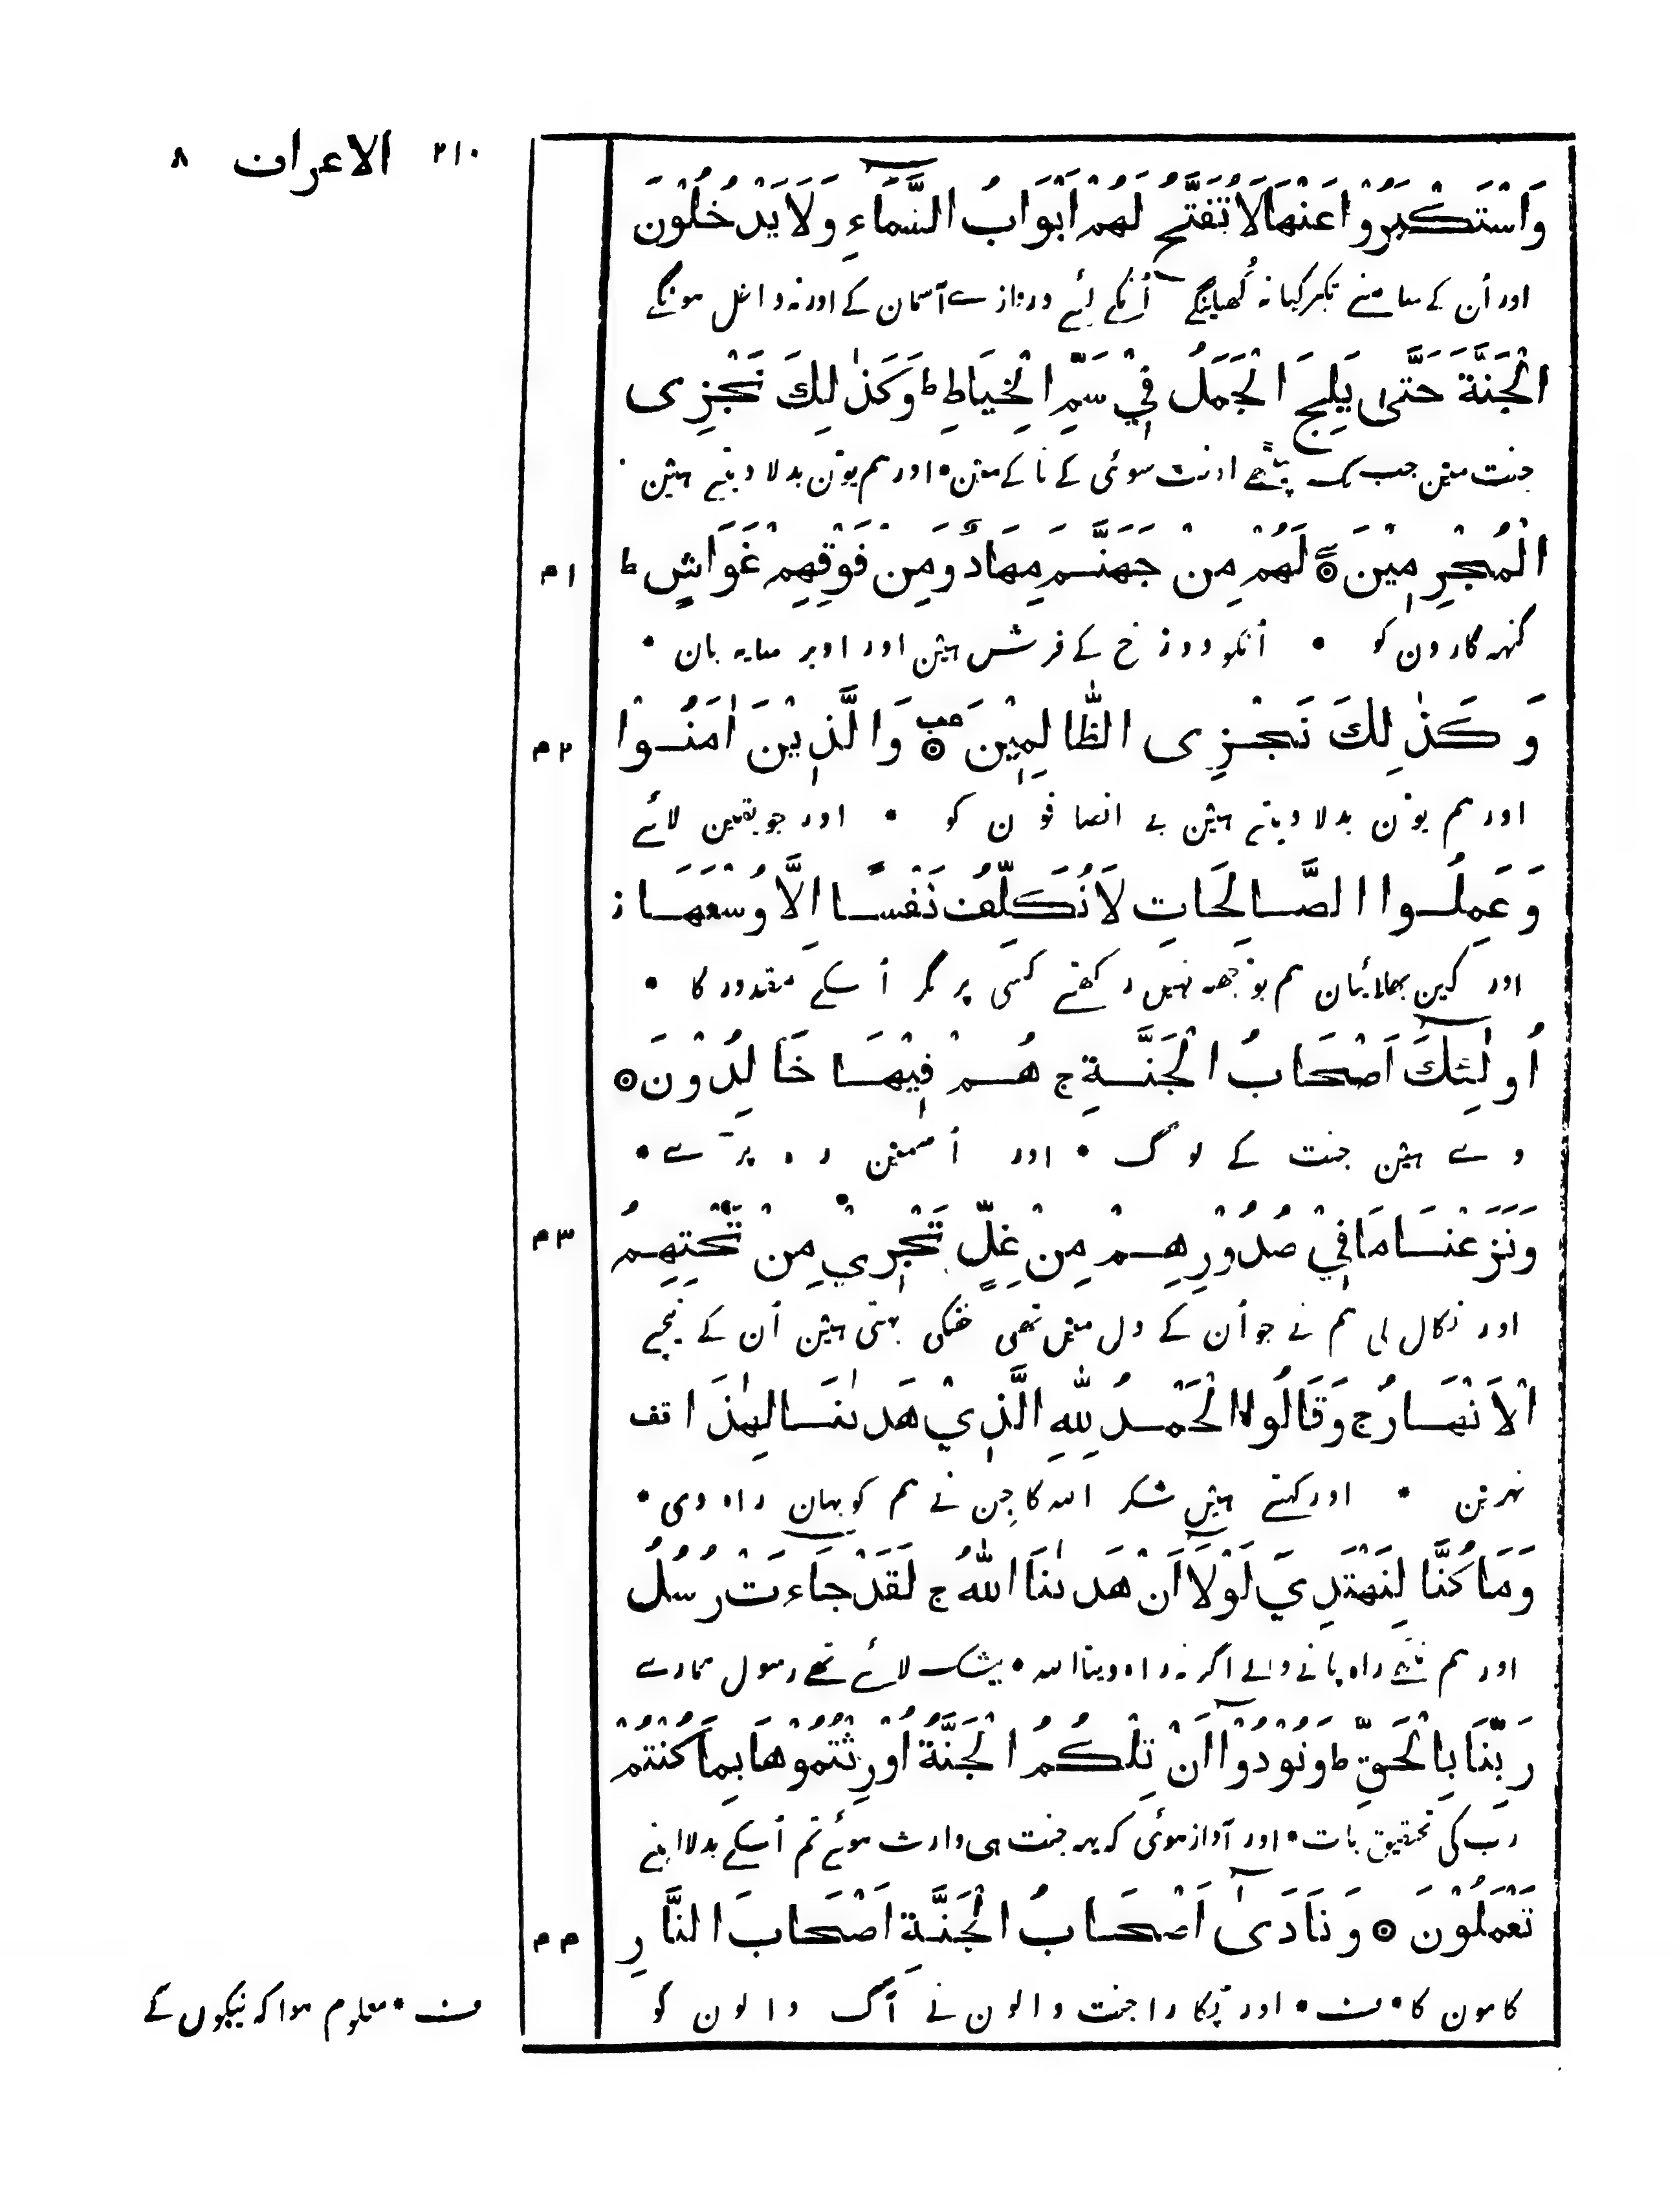 ٢١٠ الاعراف ٨
وَاسْتَكْبَرُوْا عَنْهَا لَا تُفَتَّحُ لَهُمْ اَبْوَابُ السَّمَآءِ وَلَا يَدْخُلُوْنَ
اور اُن کے سامھنے تکبر کیا نہ کُھلینگے اُنکے لئے دروازے آسمان کے اور نہ داخل ہونگے
الْجَنَّةَ حَتّٰى يَلِجَ الْجَمَلُ فِيْ سَمِّ الْخِيَاطِ ط وَكَذٰلِكَ نَجْزِى
جنت مین جب تک پیٹھے اونٹ سوئی کے ناکے مین • اور ہم یون بدلا دیتے ہین
الْمُجْرِمِيْنَ ۞ لَهُمْ مِنْ جَهَنَّمَ مِهَادٌ وَمِنْ فَوْقِهِمْ غَوَاشٍ ط ٤١
گنہہ گارون کو • اُنکو دوزخ کے فرش ہین اور اوپر سایہ بان •
وَكَذٰلِكَ نَجْزِى الظّٰالِمِيْنَ ۞ وَالَّذِيْنَ اٰمَنُوْا ٤٢
اور ہم یون بدلا دیتے ہین بے انصافون کو • اور جو یقین لائے
وَعَمِلُوا الصَّالِحَاتِ لَا نُكَلِّفُ نَفْسًا اِلَّا وُسْعَهَا ز
اور کین بھلائیان ہم بوجھہ نہیں رکھتے کسی پر مگر اُسکے مقدور کا •
اُولٰئِكَ اَصْحَابُ الْجَنَّةِ ج هُمْ فِيْهَا خَالِدُوْنَ ۞
وے ہین جنت کے لوگ • اور اُسمین رہ پڑے •
وَنَزَعْنَا مَا فِيْ صُدُوْرِهِمْ مِنْ غِلٍّ تَجْرِيْ مِنْ تَحْتِهِمُ ٤٣
اور نکال لی ہم نے جو اُن کے دل میں تھی خفگی بہتی ہین اُن کے نیچے
الْاَنْهَارُ ج وَقَالُوا الْحَمْدُ لِلّٰهِ الَّذِيْ هَدٰىنَا لِهٰذَا قف
نہرین • اور کہتے ہیں شکر اللہ کا جِن نے ہم کو یہان راہ دی •
وَمَا كُنَّا لِنَهْتَدِيَ لَوْلَآ اَنْ هَدٰىنَا اللّٰهُ ج لَقَدْ جَاءَتْ رُسُلُ
اور ہم نتھے راہ پانے والے اگر نہ راہ دیتا اللہ • بیشک لائے تھے رسول ہمارے
رَبِّنَا بِالْحَقِّ ط وَنُوْدُوْٓا اَنْ تِلْكُمُ الْجَنَّةُ اُوْرِثْتُمُوْهَا بِمَا كُنْتُمْ
رب کی تحقیق بات • اور آواز ہوئی کہ یہہ جنت ہی وارث ہوئے تم اُسکے بدلا اپنے
تَعْمَلُوْنَ ۞ وَنَادَىٰٓ اَصْحَابُ الْجَنَّةِ اَصْحَابَ النَّارِ ٤٤
کامون کا • ف • اور پُکارا جنت والون نے آگ والون کو
ف • معلوم ہوا کہ نیکیوں کے